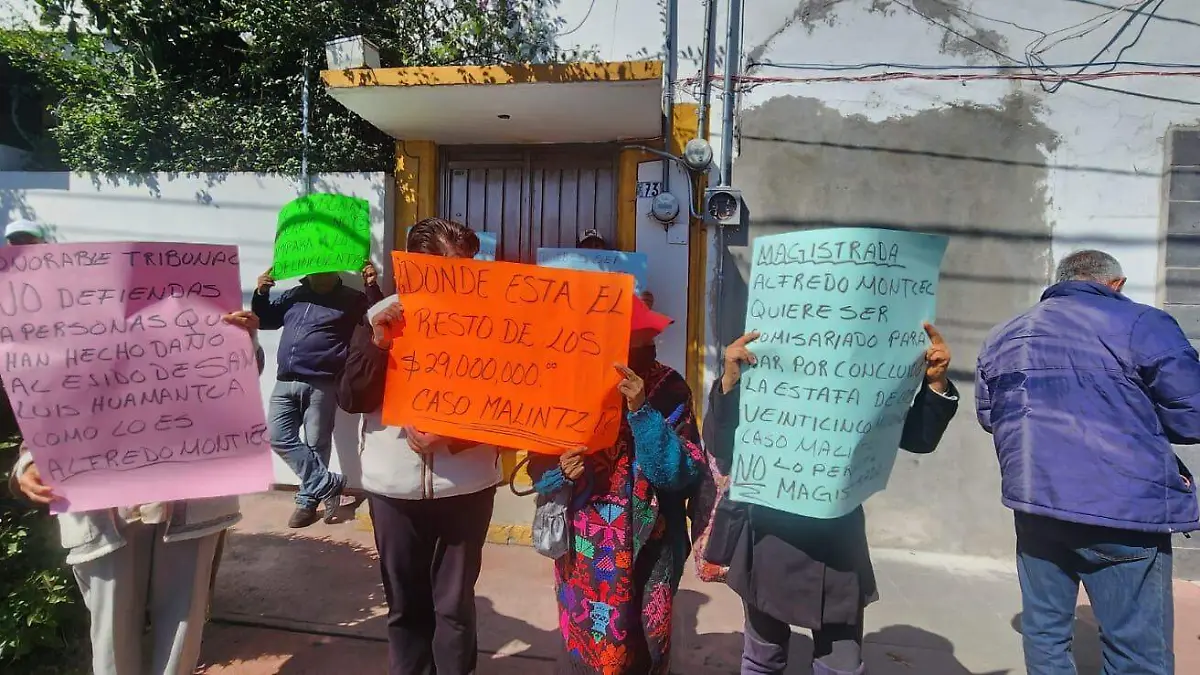 ONORABLE TRIBUNAL
NO DEFIENDAS
A PERSONAS QUE
HAN HECHO DAÑO
AL EJIDO DE SAN
LUIS HUAMANTLA
COMO LO ES
ALFREDO MONTIEL
AMPARA A
DELINCUENTES
¿DONDE ESTA EL
RESTO DE LOS
$29,000,000.00
CASO MALINTZI
73
MAGISTRADA
ALFREDO MONTIEL
QUIERE SER
COMISARIADO PARA
DAR POR CONCLUIDO
LA ESTAFA DE LOS
VEINTICINCO
CASO MALI
NO LO PER
MAGIS